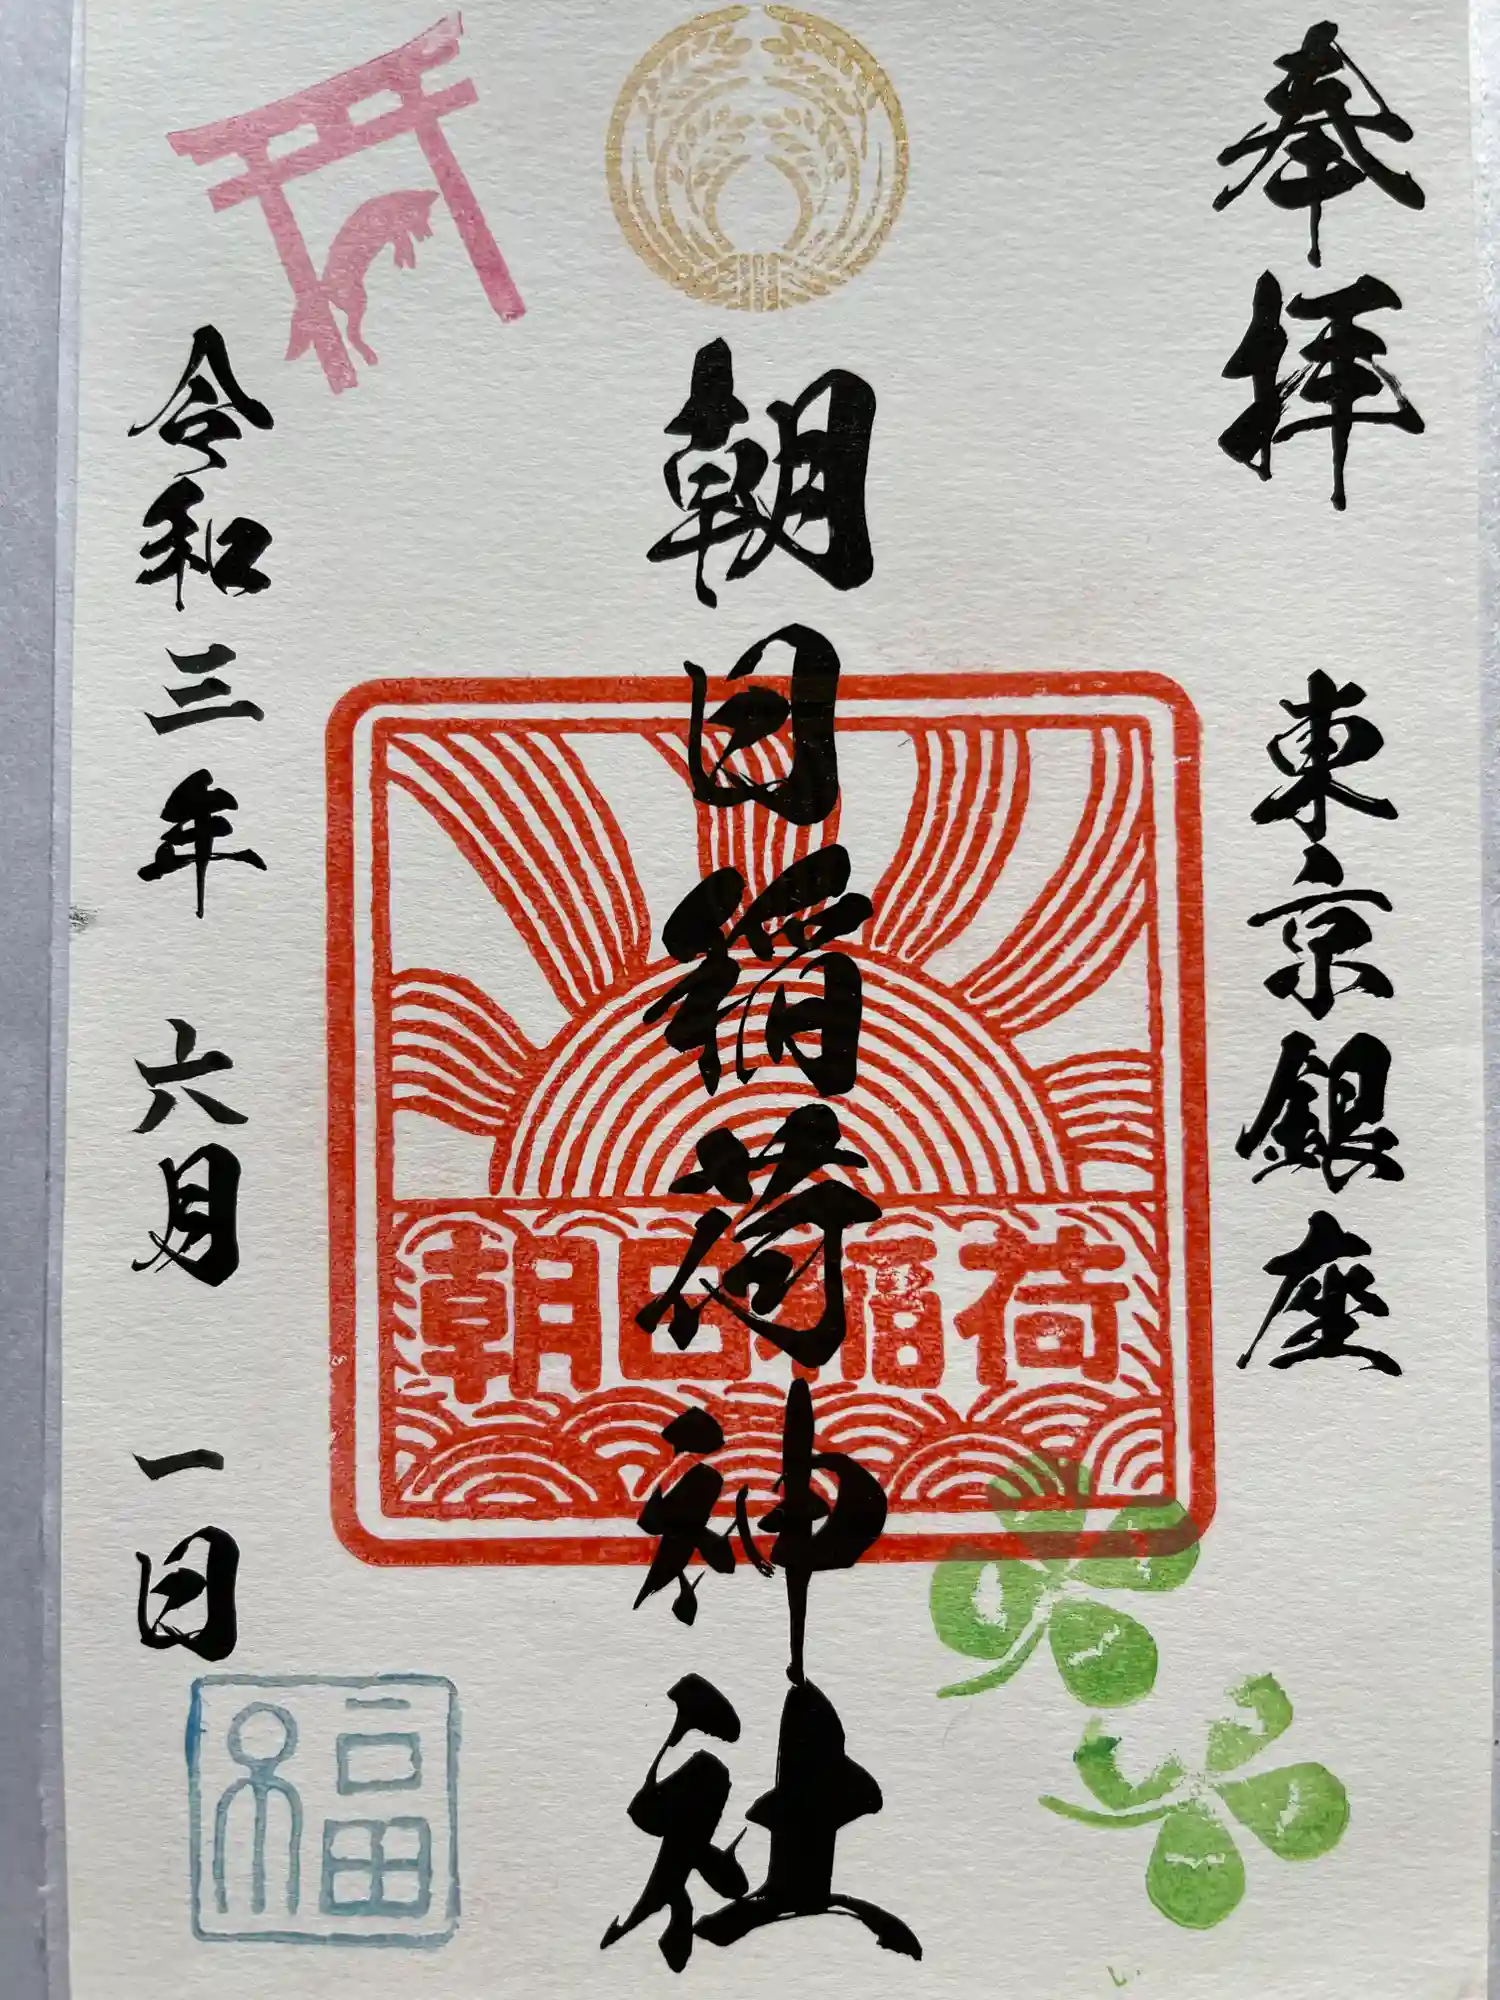 奉拝
東京銀座
朝日稲荷神社
朝日稲荷
令和三年 六月 一日
福